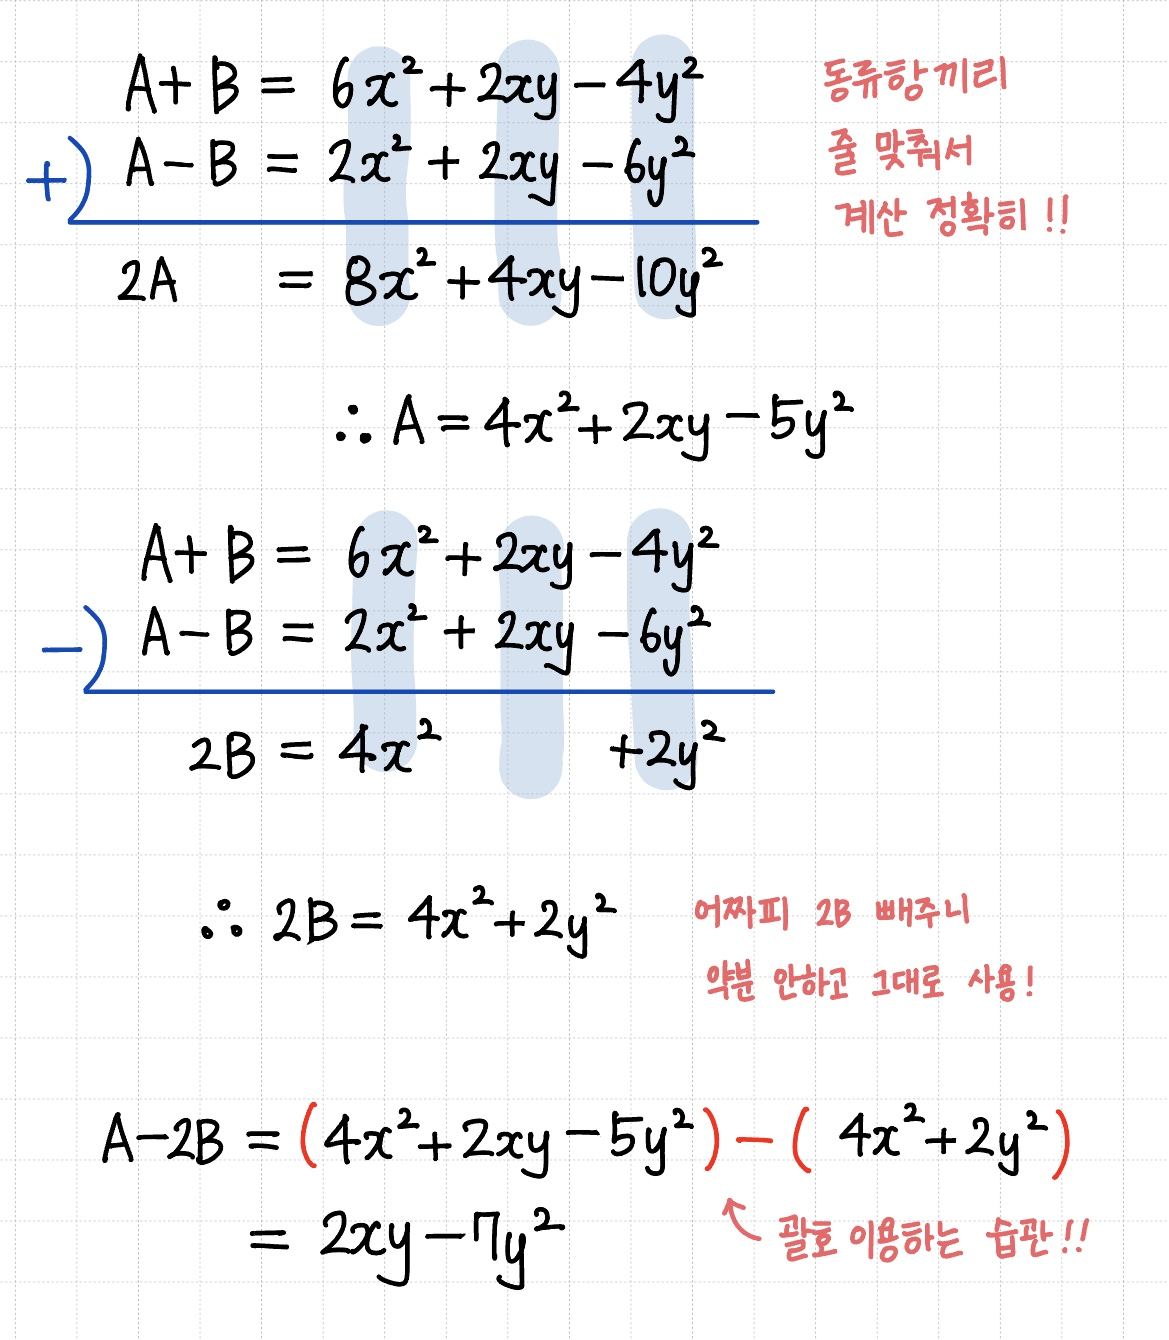 A+B = 6x²+2xy-4y² 동류항끼리
+) A-B = 2x²+2xy-6y² 줄 맞춰서
계산 정확히!!
2A = 8x²+4xy-10y²
∴ A=4x²+2xy-5y²
A+B = 6x²+2xy-4y²
-) A-B = 2x²+2xy-6y²
2B = 4x² +2y²
∴ 2B= 4x²+2y² 어짜피 2B 빼주니
약분 안하고 그대로 사용!
A-2B = (4x²+2xy-5y²)-( 4x²+2y²)
= 2xy-7y² 괄호 이용하는 습관!!